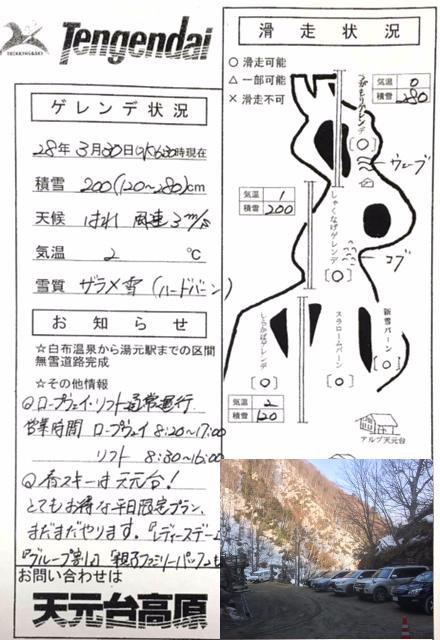 TREKKING&SKI
Tengendai
ゲレンデ状況
28年 3月30日(水)6:30時現在
積雪 200(120~280)cm
天候 はれ 風速3m/s
気温 2 ℃
雪質 ザラメ雪(ハードバーン)
お知らせ
☆白布温泉から湯元駅までの区間
無雪道路完成
☆その他情報
◎ロープウェイ・リフト通常運行
営業時間 ロープウェイ 8:20~17:00
リフト 8:30~16:00
◎春スキーは天元台!
とてもお得な平日限定プラン、
まだまだやります。『レディースデー』
『グループ割』『親子ファミリーパック』も
お問い合わせは
天元台高原
滑走状況
○ 滑走可能
△ 一部可能
× 滑走不可
気温 0
積雪 280
つがもりゲレンデ
[○]
ウェーブ
気温 1
積雪 200
しゃくなげゲレンデ
コブ
[○]
しらかばゲレンデ
[○]
スラロームバーン
[○]
新雪バーン
[○]
気温 2
積雪 120
アルブ天元台